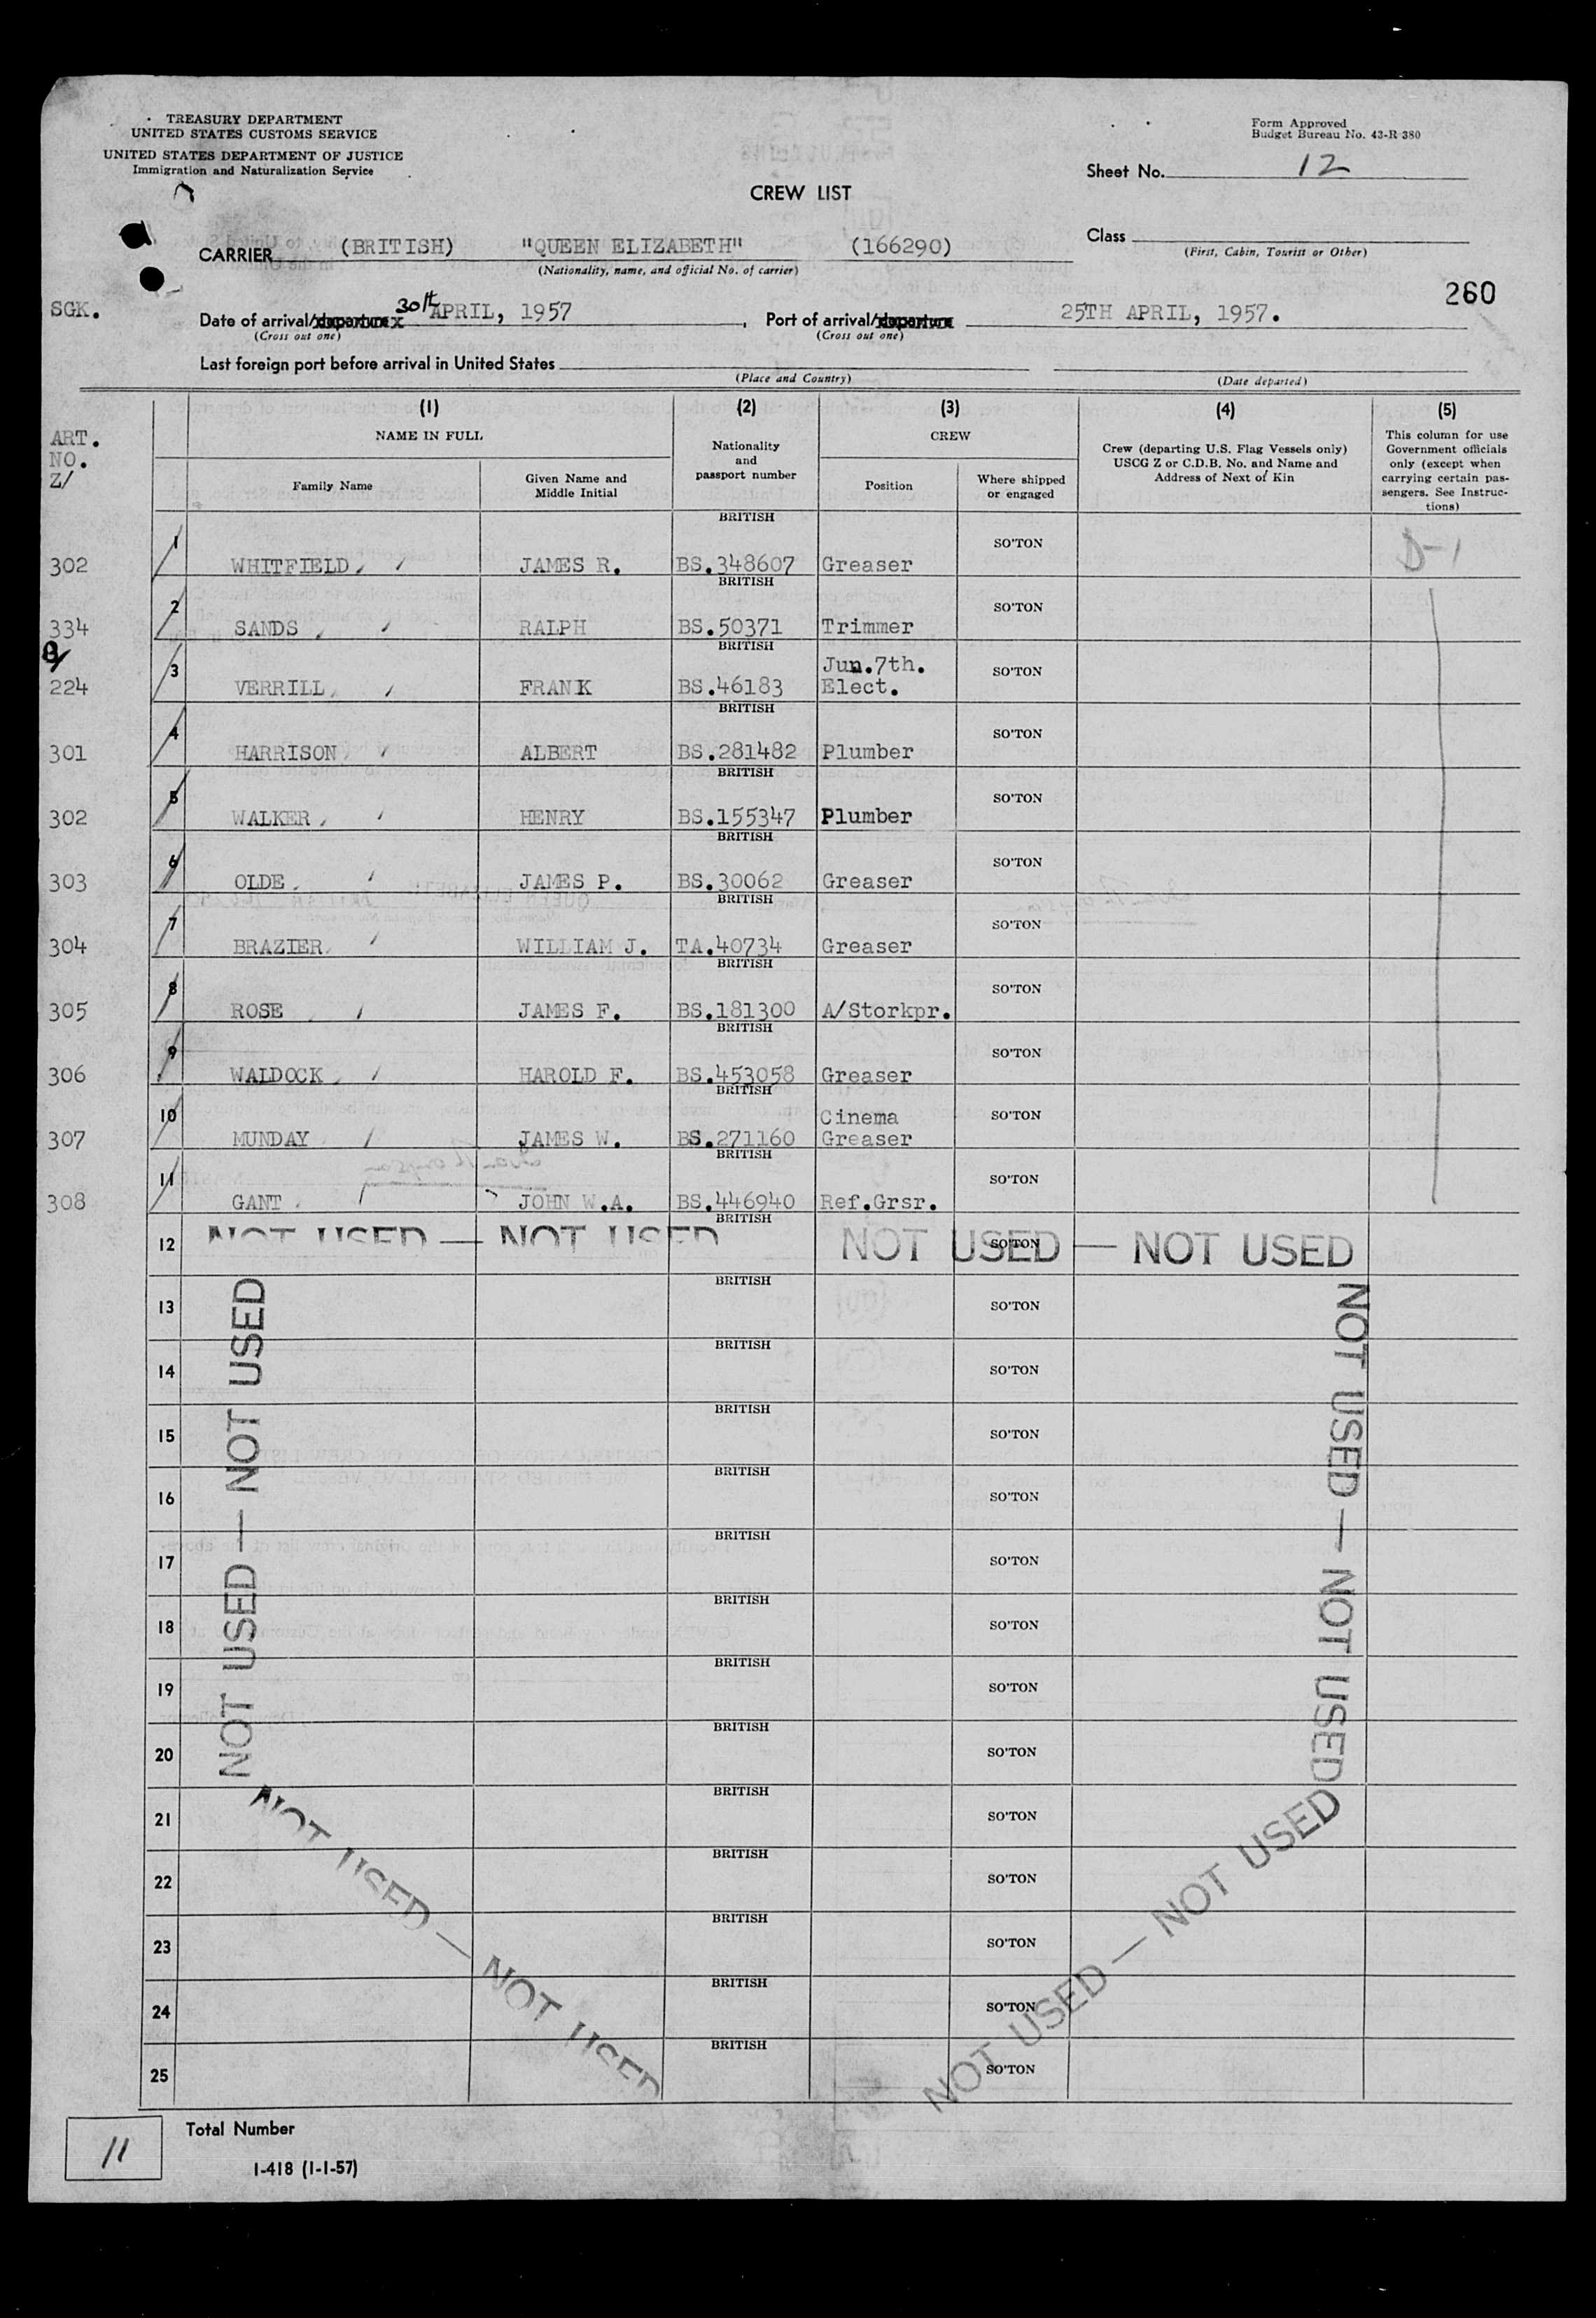 TREASURY DEPARTMENT
UNITED STATES CUSTOMS SERVICE
UNITED STATES DEPARTMENT OF JUSTICE
Immigration and Naturalization Service
Form Approved
Budget Bureau No. 43-R-380
Sheet No. 12
CREW LIST
CARRIER (BRITISH) "QUEEN ELIZABETH" (166290)
(Nationality, name, and official No. of carrier)
Class
(First, Cabin, Tourist or Other)
260
SGK.
Date of arrival/departure 30th APRIL, 1957, Port of arrival/departure 25TH APRIL, 1957.
(Cross out one) (Cross out one)
Last foreign port before arrival in United States
(Place and Country) (Date departed)
ART. NO. Z/
(1) (2) (3) (4) (5)
NAME IN FULL
Family Name
Given Name and Middle Initial
Nationality and passport number
CREW
Position
Where shipped or engaged
Crew (departing U.S. Flag Vessels only) USCG Z or C.D.B. No. and Name and Address of Next of Kin
This column for use Government officials only (except when carrying certain passengers. See Instructions)
302 1 WHITFIELD JAMES R. BRITISH BS.348607 Greaser SO'TON D-1
334 2 SANDS RALPH BRITISH BS.50371 Trimmer SO'TON
224 3 VERRILL FRANK BRITISH BS.46183 Jun.7th. Elect. SO'TON
301 4 HARRISON ALBERT BRITISH BS.281482 Plumber SO'TON
302 5 WALKER HENRY BRITISH BS.155347 Plumber SO'TON
303 6 OLDE JAMES P. BRITISH BS.30062 Greaser SO'TON
304 7 BRAZIER WILLIAM J. BRITISH TA.40734 Greaser SO'TON
305 8 ROSE JAMES F. BRITISH BS.181300 A/Storkpr. SO'TON
306 9 WALDOCK HAROLD F. BRITISH BS.453058 Greaser SO'TON
307 10 MUNDAY JAMES W. BRITISH BS.271160 Cinema Greaser SO'TON
308 11 GANT JOHN W.A. BRITISH BS.446940 Ref.Grsr. SO'TON
12 BRITISH SO'TON
NOT USED — NOT USED NOT USED — NOT USED
13 BRITISH SO'TON
14 BRITISH SO'TON
15 BRITISH SO'TON
16 BRITISH SO'TON
17 BRITISH SO'TON
18 BRITISH SO'TON
19 BRITISH SO'TON
20 BRITISH SO'TON
21 BRITISH SO'TON
22 BRITISH SO'TON
23 BRITISH SO'TON
24 BRITISH SO'TON
25 BRITISH SO'TON
NOT USED — NOT USED
NOT USED — NOT USED
NOT USED — NOT USED
NOT USED — NOT USED
11
Total Number
I-418 (1-1-57)